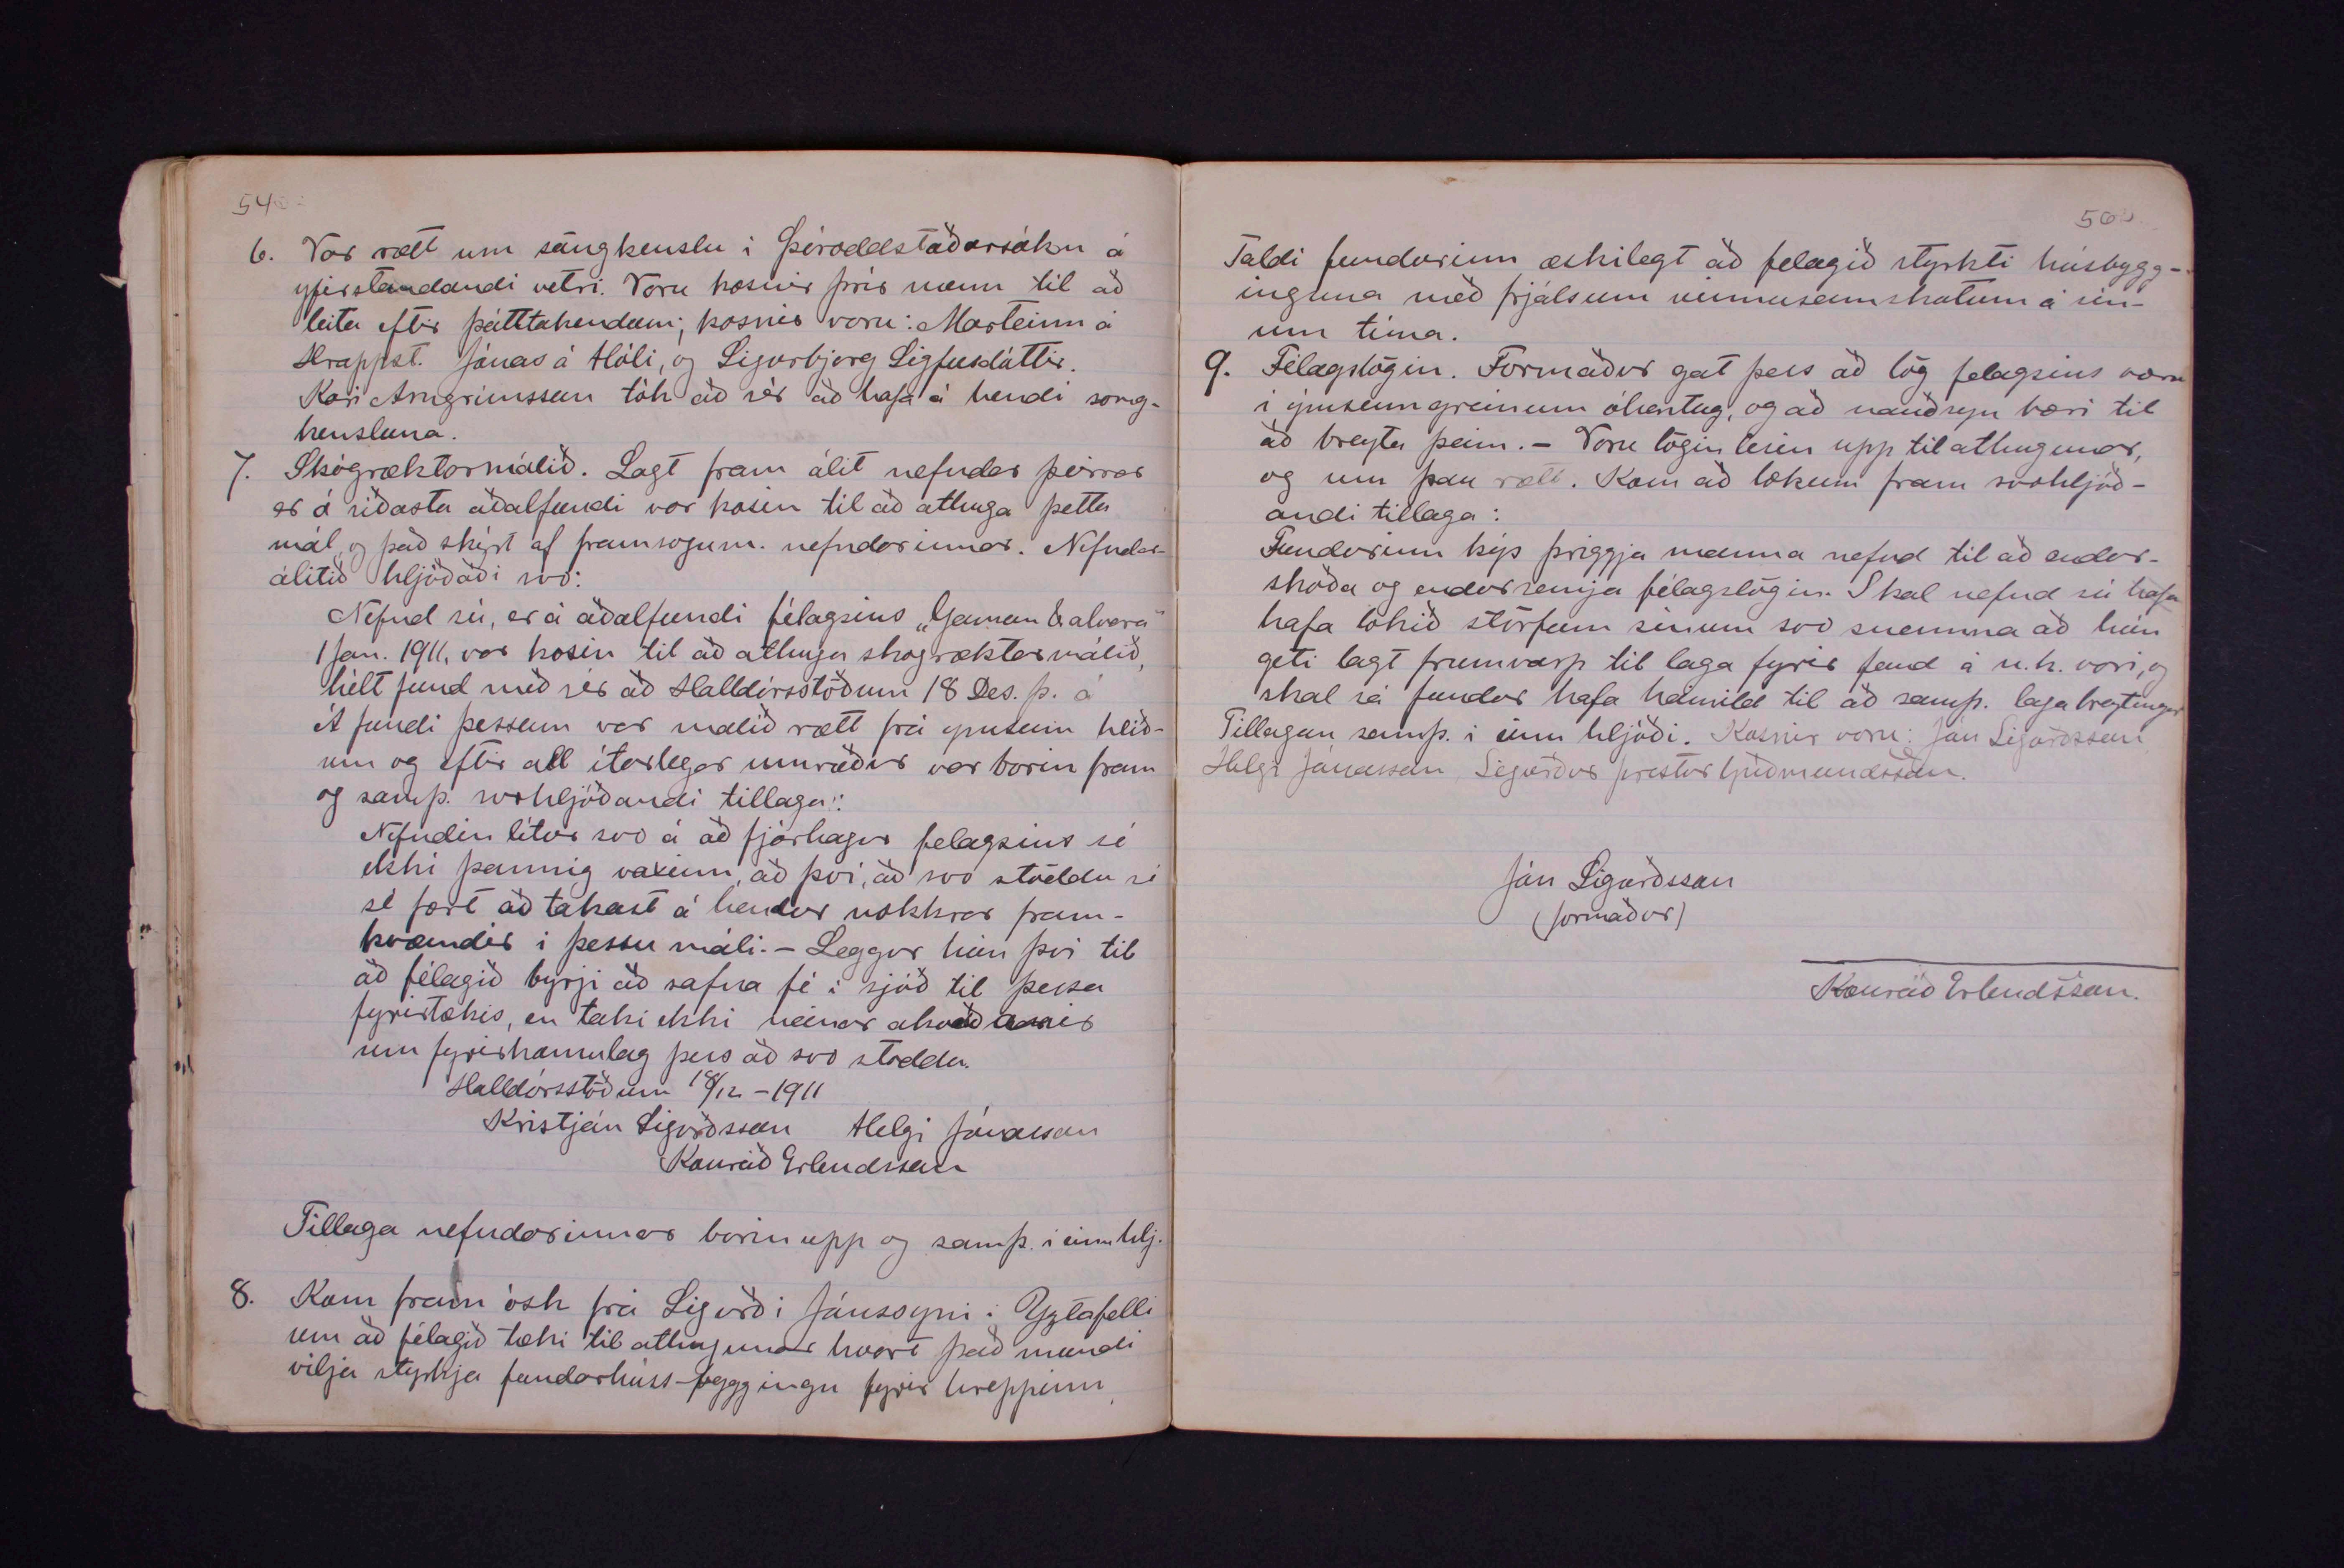 54
6. Var rætt um sángkenslu i Þóroddstaðarsókn á
yfirstandandi vetri. Voru kosnir þrír menn til að
leita eftir þátttakendum; kosnir voru: Marteinn á
Hrappst. Jónas á Hóli, og Sigurbjorg Sigfusdóttir.
Kári Arngrímsson tók að sér að hafa á hendi song-
kensluna.
7. Skógræktarmálið. Lagt fram álit nefndar þeirrar
er á siðasta aðalfundi var kosin til að athuga þetta
mál, og það skýrt af framsogum. nefndarinnar. Nefndar-
álitið hljóðaði svo:
Nefnd sú, er á aðalfundi félagsins „Gaman & alvara"
1 Jan. 1911, var kosin til að athuga skogræktarmálið,
hélt fund með sér að Halldórsstöðum 18 Des. þ. á
Á fundi þessum var malið rætt frá ymsum hlið-
um og eftir all ítarlegar umræður var borin fram
og samþ. svohljóðandi tillaga:
Nefndin lítur svo á að fjárhagur felagsins sé
ekki þannig vaxinn, að því, að svo stöddu sé
sé fært að takast á hendur nokkrar fram-
kvæmdir i þessu máli. - Leggur hún því til
að félagið byrji að safna fé i sjóð til þessa
fyrirtækis, en taki ekki neinar akvarðanir
um fyrirkomulag þess að svo stoddu.
Halldórsstöðum 18/12 - 1911
Kristján Sigurðsson Helgi Jónasson
Konráð Erlendsson
Tillaga nefndarinnar borin upp og samþ. i einu hlj.
8. Kom fram ósk frá Sigurði Jónssyni i Yztafelli
um að félagið tæki til athugunar hvort það mundi
vilja styrkja fundarhúss-byggingu fyrir hreppinn,
56
Taldi fundurinn æskilegt að felagið styrkti húsbygg-
inguna með frjálsum vinnusamskotum á sín-
um tíma.
9. Félagslögin. Formaður gat þess að lög felagsins væru
i ýmsum greinum óhentug, og að nauðsyn bæri til
að breyta þeim. - Voru lögin lesin upp til athugunar,
og um þau rætt. Kom að lokum fram svohljóð-
andi tillaga:
Fundurinn kýs þriggja manna nefnd til að endur-
skoða og endursemja félagslögin. Skal nefnd sú hafa
hafa lokið störfum sínum svo snemma að hún
geti lagt frumvarp til laga fyrir fund á n.k. vori, og
skal sá fundur hafa heimild til að samþ. laga breytingar
Tillagan samþ. i einu hljóði. Kosnir voru: Jón Sigurðsson
Helgi Jónasson, Sigurður prestur Guðmundsson.
Jón Sigurðsson
(formaður)
Konráð Erlendsson.